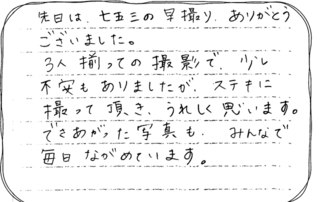 先日は、七五三の早撮り、ありがとう
ございました。
3人揃っての撮影で、少し
不安もありましたが、ステキに
撮って頂き、うれしく思います。
できあがった写真も、みんなで
毎日ながめています。